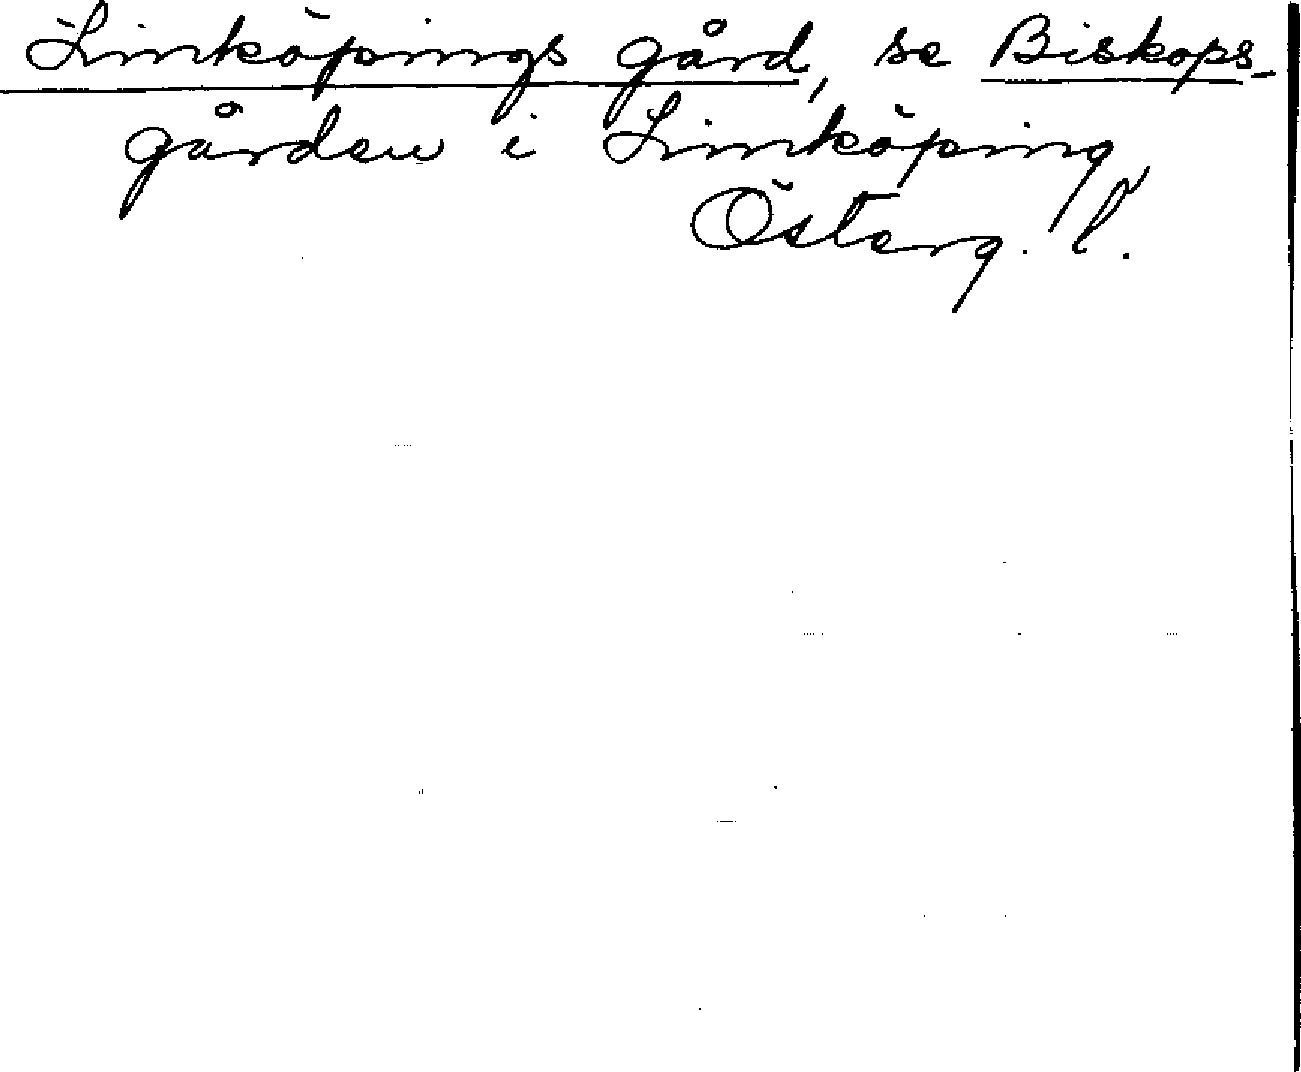 Linköpings gård, se Biskops-
gården i Linköping,
Österg. l.